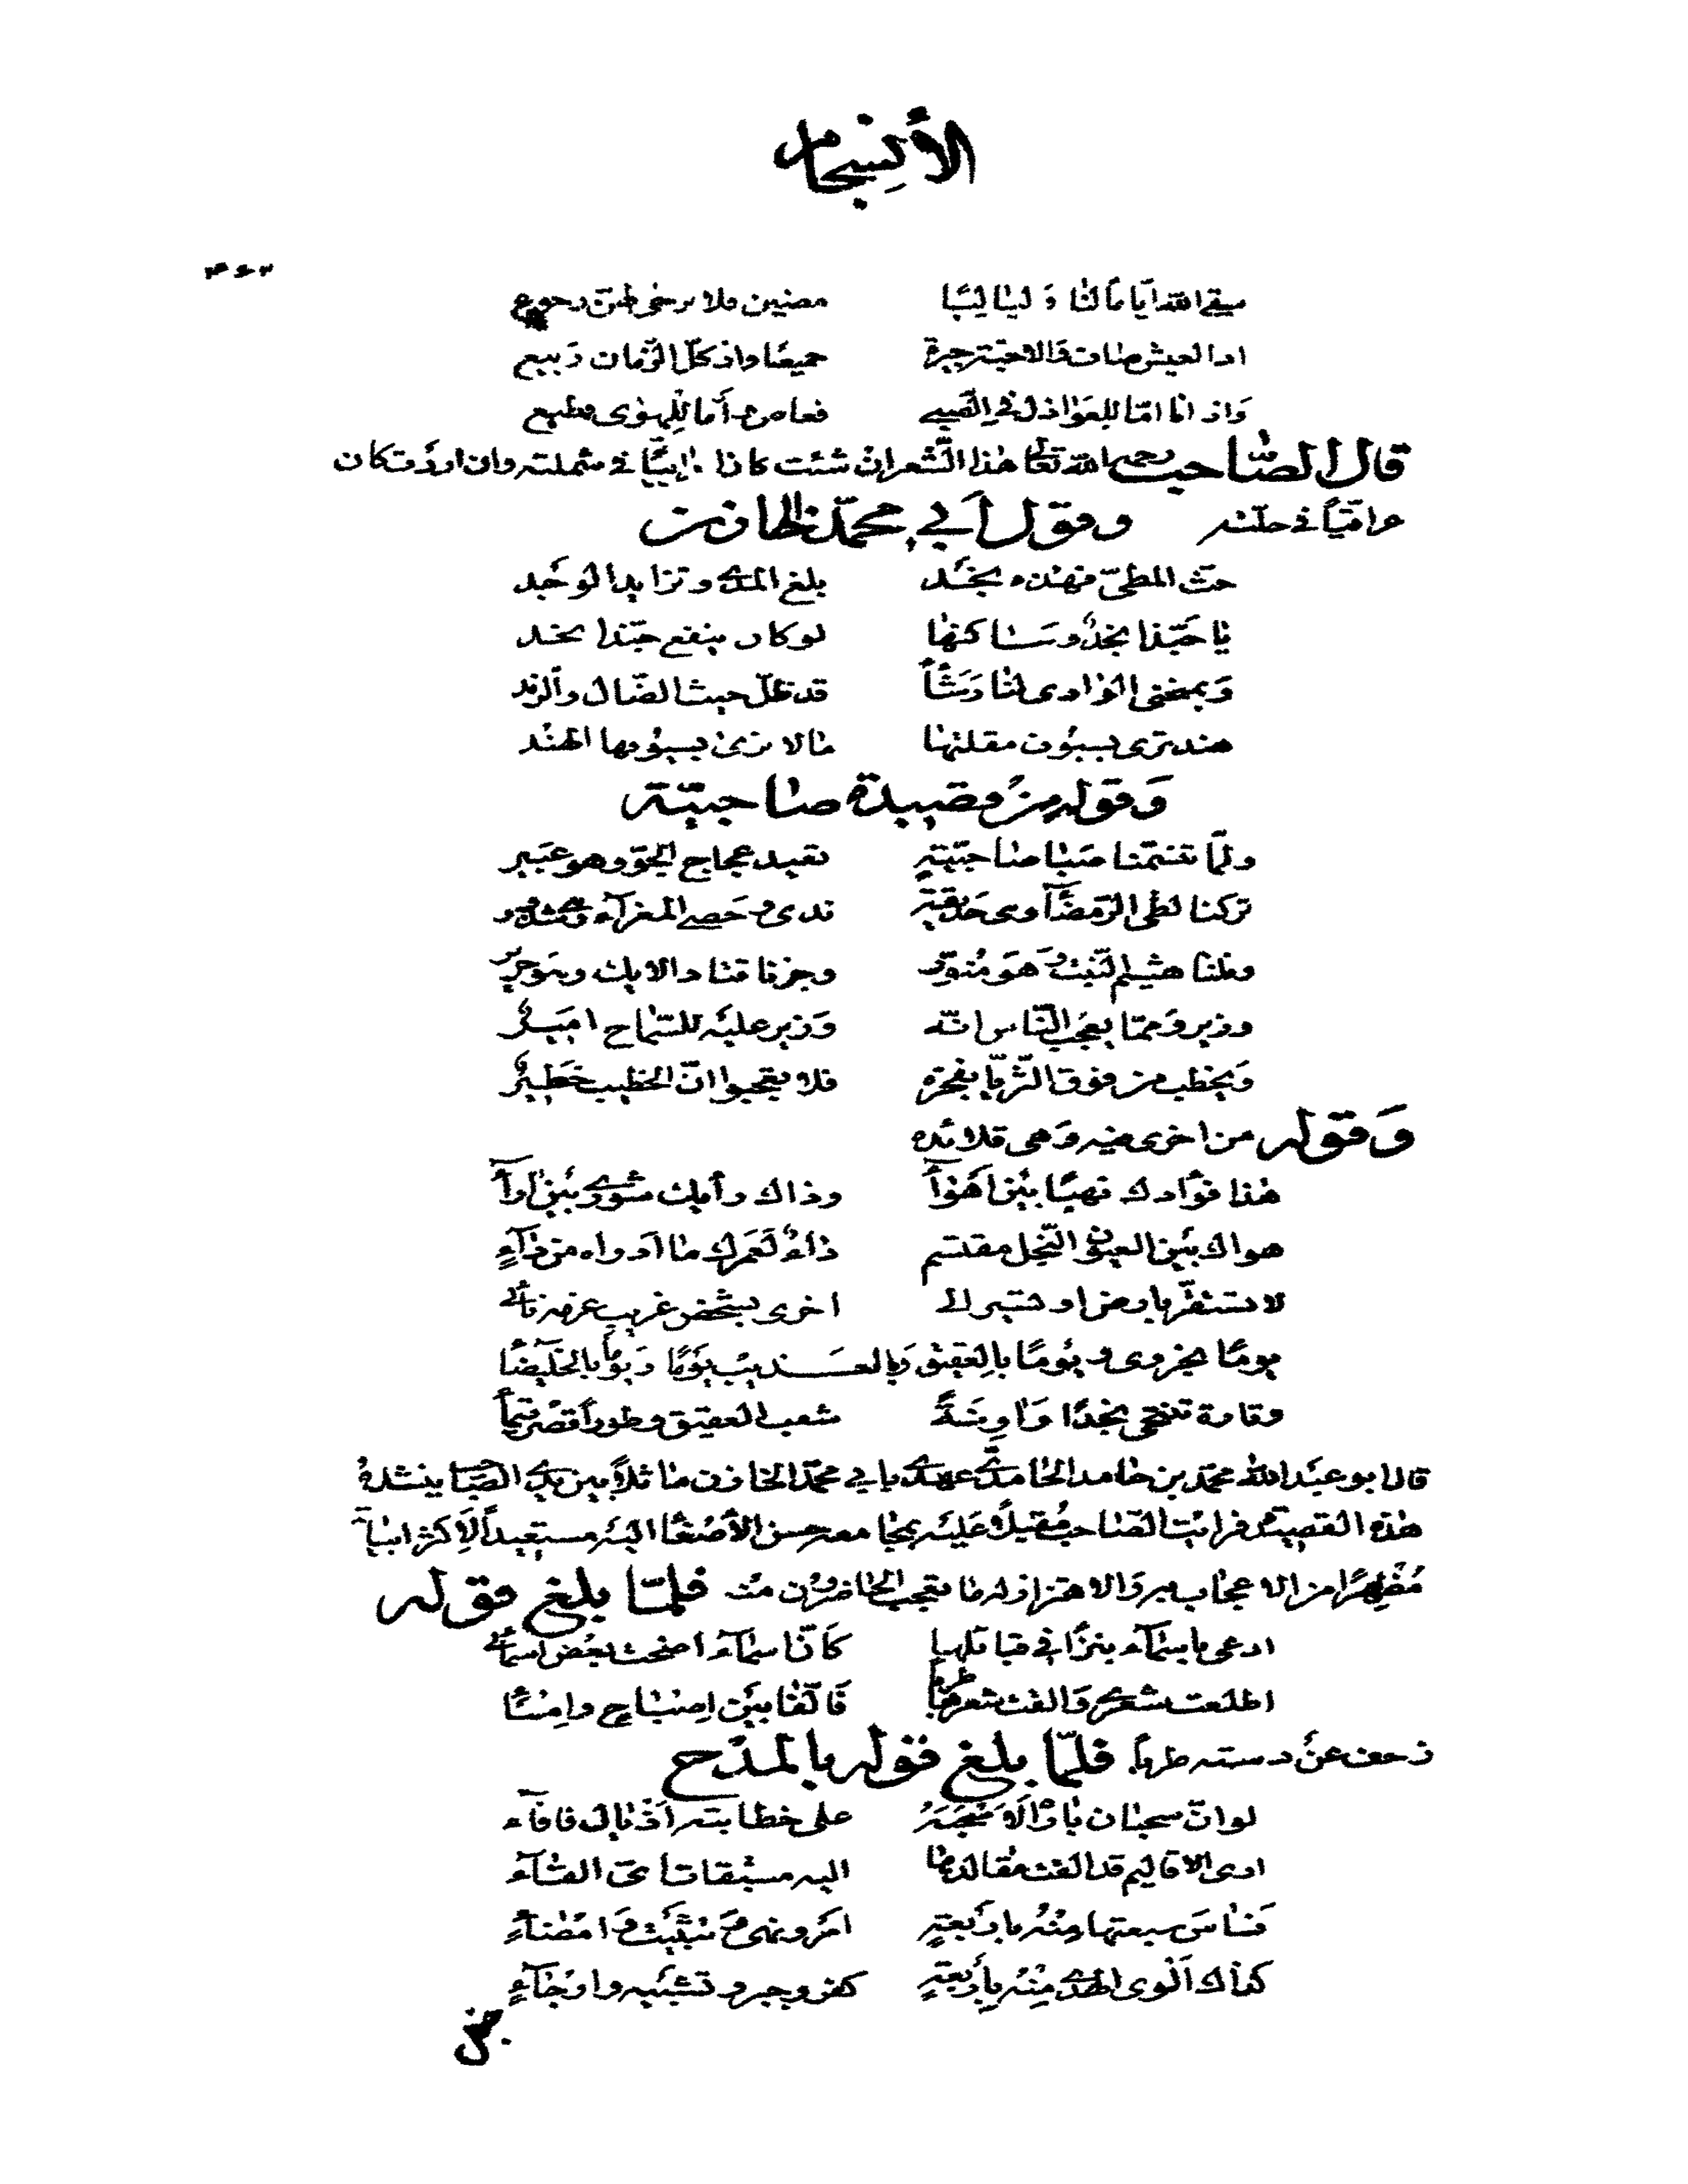 الأنسجام
سقى الله أيامًا لنا ولياليًا مضين فلا يرجى لهن رجوع
اذ العيش صاف والاحبة جيرة جميعًا واذ كل الزمان ربيع
واذ انا امّا للعواذل في الصبى فعاص وأما للهوى فمطيع
قال الصّاحب رحمه الله تعالى هذا الشعر ان شئت كان اعرابيًا في شملته وان اردت كان
عراقيًا في حلته وقول أبي محمّد الخازن
حث المطيّ فهذه نجد بلغ المدى وتزايد الوجد
يا حبّذا نجد وساكنها لو كان ينفع حبّذا نجد
وبمنحنى الوادي لنا رشأ قد ظلّ حيث الضّال والرند
هند ترى بسيوف مقلتها ما لا ترى بسيوفها الهند
وقوله من قصيدة صاحبيّة
ولمّا تنسّمنا صبا صاحبيّةٍ تعيد عجاج الجوّ وهو عبير
تركنا لظى الرّمضآء وهي حديقة
وقلنا هشيم النّبت وهو منوّر وجزنا قتاد الايك وهو حرير
وزير وممّا يعجب النّاس انّه وزير عليه للسّماح امير
ويخطب من فوق الثّريّا بفخره فلا تعجبوا انّ الخطيب خطير
وقوله من اخرى فيه وهي قلائده
هذا فؤادك نهبًا بين أهوآء وذاك رأيك شورى بين ارآء
هواك بين العيون النّجل مقتسم داءٌ لعمرك ما ادواه من دآءٍ
لا تستقرّ بارض او تسير الى اخرى بشخص غريب عزمه نائي
يومًا بحزوى ويومًا بالعقيق وبالعـــذيب يومًا ويومًا بالخليصاء
وتارة تنتحي نجدًا واونة شعب العقيق وطورًا قصر تيماء
قال ابو عبد الله محمّد بن حامد الحامدي عهدي بابي محمّد الخازن ماثلًا بين يدي الصاحب ينشده
هذه القصيدة فرايت الصاحب مقبلًا عليه بمجامعه حسن الأصغاء اليه مستعيدًا لاكثر ابياته
مظهرًا من الاعجاب به والاهتزاز له ما يعجب الحاضرون منه فلمّا بلغ قوله
ادعى باسمآء نبزًا في قبائلها كأنّ اسمآء اضحت بعض اسمائي
اطلعت شعري والقت شعرها طربًا فالّفا بين اصباح وامساء
زحف عن دسته طربًا فلمّا بلغ قوله بالمدح
لو انّ سحبان باراه لاسحبه على خطابته اذيال فافآء
ارى الاقاليم قد القت مقاليدها اليه مستبقات أي القآء
فساس سبعتها منه باربعةٍ امر ونهي وتثبيت وامضاءٍ
كذاك ألوى الهدى منه بأربعةٍ كفر وجبر وتشبيه وارجآءٍ